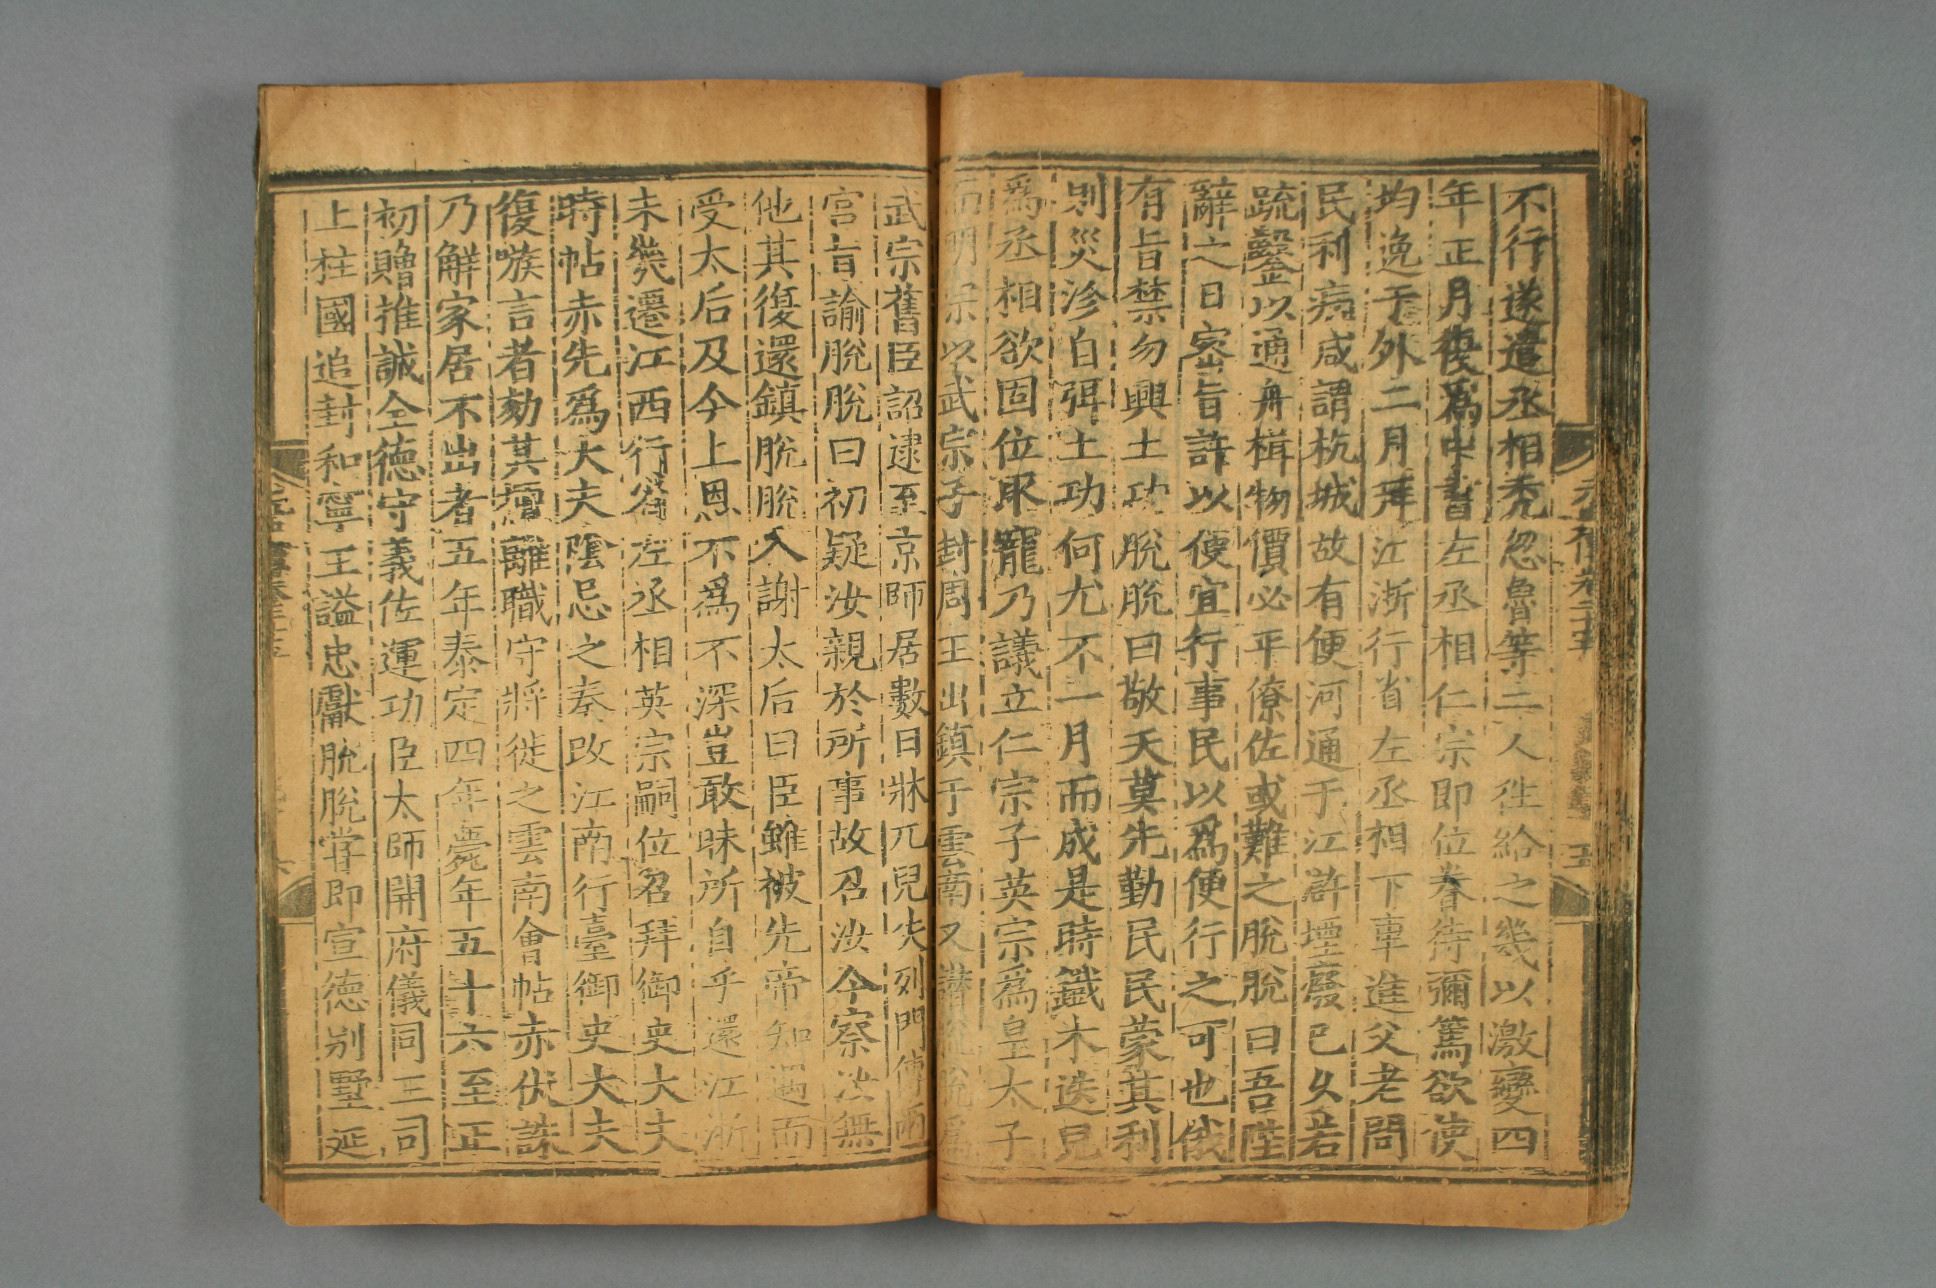 不行遂遣丞相禿忽魯等二人徃給之幾以激變四
年正月復爲中書左丞相仁宗即位眷待彌篤欲使
均逸于外二月拜江浙行省左丞相下車進父老問
民利病咸謂杭城故有便河通于江滸堙廢已久若
疏鑿以通舟楫物價必平僚佐或難之脫脫曰吾陛
辭之日密旨許以便宜行事民以爲便行之可也俄
有旨禁勿興土功脫脫曰敬天莫先勤民民蒙其利
則災沴自弭土功何尤不一月而成是時鐵木迭兒
爲丞相欲固位取寵乃議立仁宗子英宗爲皇太子
而明宗以武宗子封周王出鎮于雲南又譖脫脫爲
武宗舊臣詔逮至京師居數日牀兀兒失列門傳兩
宮旨諭脫脫曰初疑汝親於所事故召汝今察汝無
他其復還鎮脫脫入謝太后曰臣雖被先帝知遇而
受太后及今上恩不爲不深豈敢昧所自乎還江浙
未幾遷江西行省左丞相英宗嗣位召拜御史大夫
時帖赤先爲大夫陰忌之奏改江南行臺御史大夫
復嗾言者劾其擅離職守將徙之雲南會帖赤伏誅
乃解家居不出者五年泰定四年薨年五十六至正
初贈推誠全德守義佐運功臣太師開府儀同三司
上柱國追封和寧王謚忠獻脫脫嘗即宣德别墅延